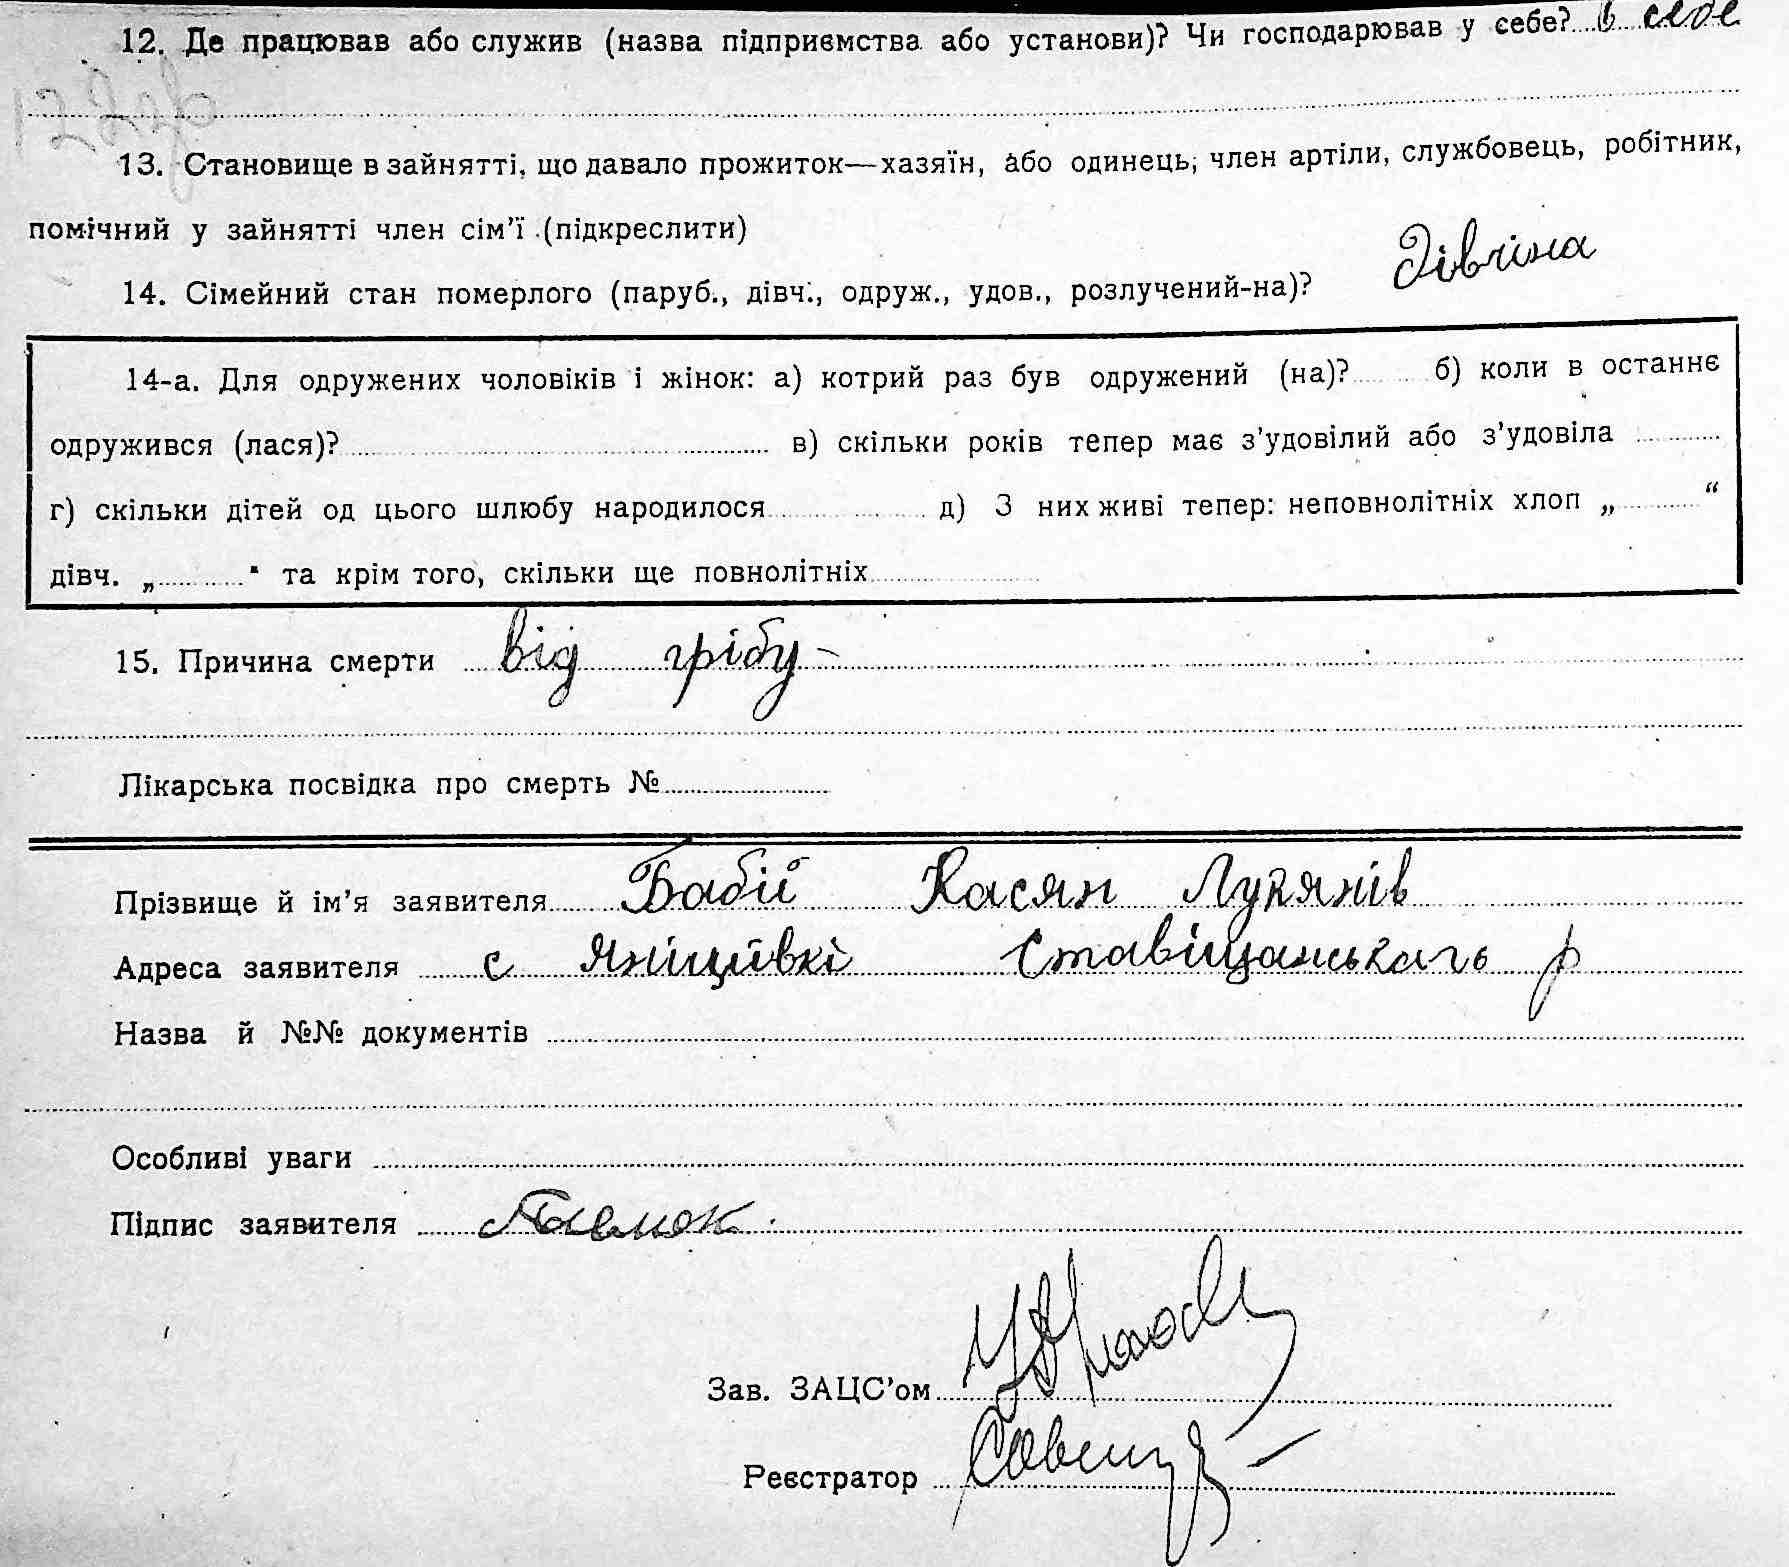 12. Де працював або служив (назва підприємства або установи)? Чи господарював у себе? в себе
13. Становище в зайнятті, що давало прожиток—хазяїн, або одинець, член артіли, службовець, робітник,
помічний у зайнятті член сім'ї (підкреслити)
14. Сімейний стан померлого (паруб., дівч., одруж., удов., розлучений-на)? Дівчіна
14-а. Для одружених чоловіків і жінок: а) котрий раз був одружений (на)? б) коли в останнє
одружився (лася)? в) скільки років тепер має з'удовілий або з'удовіла
г) скільки дітей од цього шлюбу народилося д) З них живі тепер: неповнолітніх хлоп „ “
дівч. „ “ та крім того, скільки ще повнолітніх
15. Причина смерти від грібу -
Лікарська посвідка про смерть №
Прізвище й ім'я заявителя Бабій Касян Лукянів
Адреса заявителя с Яніщівкі Ставіщанського р
Назва й №№ документів
Особливі уваги
Підпис заявителя
Зав. ЗАЦС'ом
Реєстратор